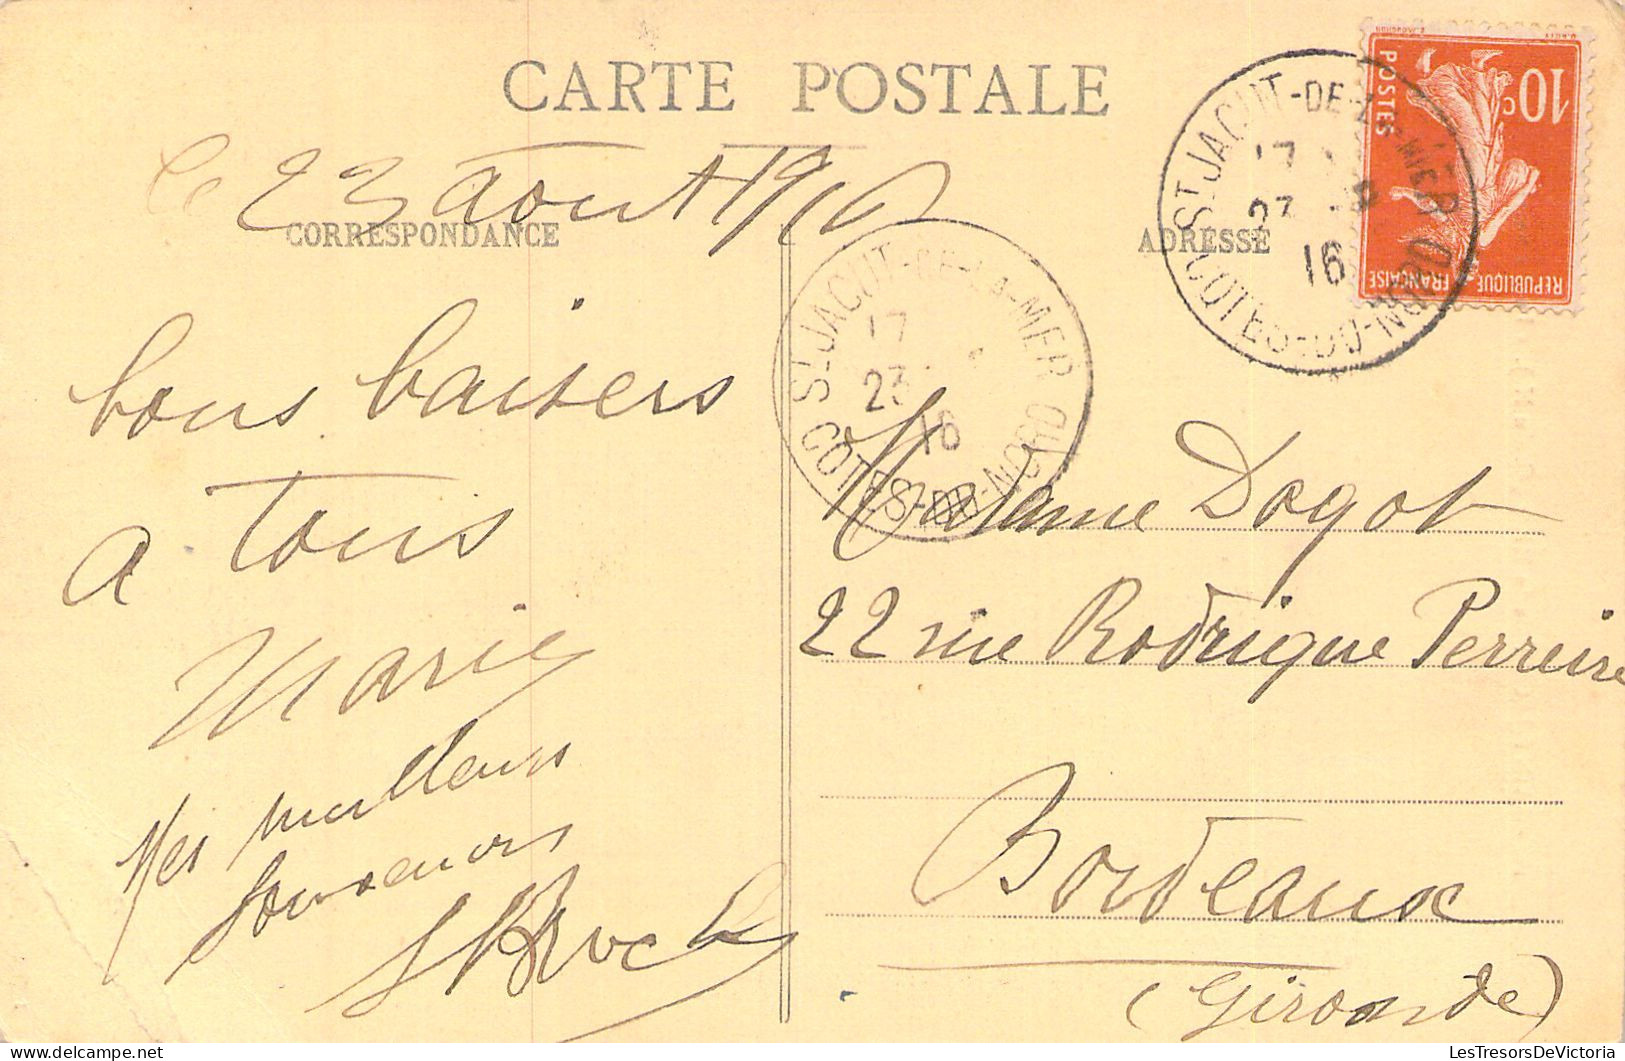 CARTE POSTALE
Le 23 aout 1916
CORRESPONDANCE
ADRESSE
bons baisers
a tous
Marie
Mes meilleurs
souvenirs
Madame Dogot
22 rue Rodrigue Perreire
Bordeaux
(Gironde)
ST JACUT-DE-LA-MER
17
23
16
COTES-DU-NORD
ST JACUT-DE-LA-MER
17
23
16
COTES-DU-NORD
10c
POSTES
REPUBLIQUE FRANÇAISE
LesTresorsDeVictoria.com